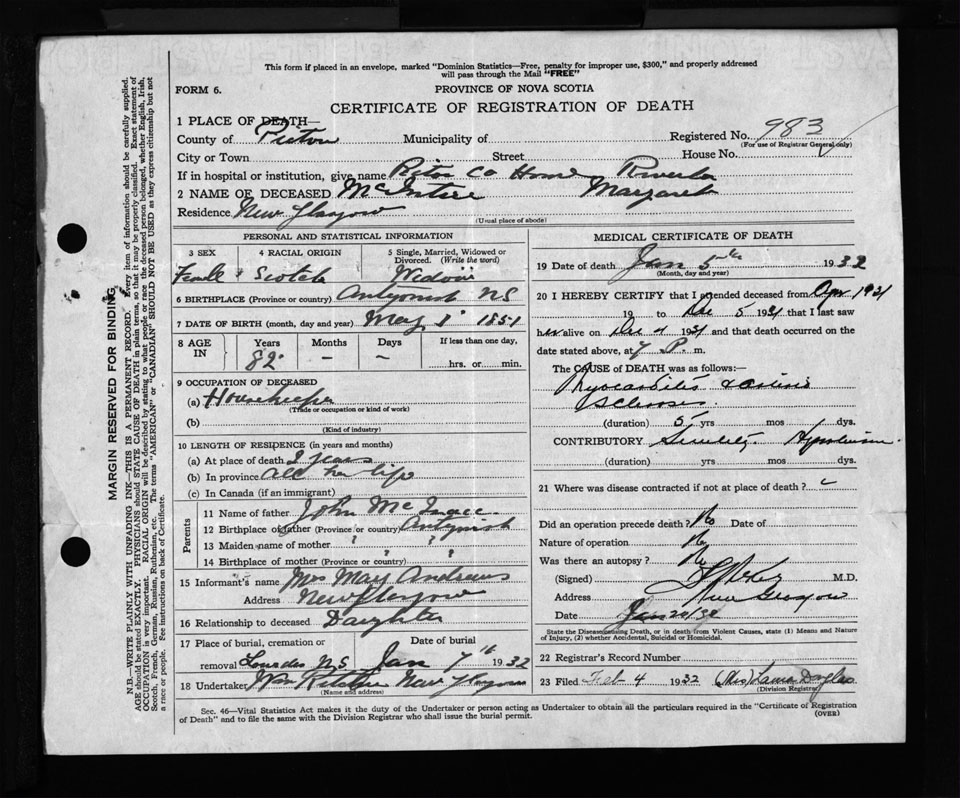 This form if placed in an envelope, marked "Dominion Statistics—Free, penalty for improper use, $300," and properly addressed
will pass through the Mail "FREE"
FORM 6.
PROVINCE OF NOVA SCOTIA
CERTIFICATE OF REGISTRATION OF DEATH
1 PLACE OF DEATH—
County of Pictou Municipality of Registered No. 983
(For use of Registrar General only)
City or Town Street House No.
If in hospital or institution, give name Co Home
2 NAME OF DECEASED Margaret
Residence New Glasgow
(Usual place of abode)
PERSONAL AND STATISTICAL INFORMATION
3 SEX 4 RACIAL ORIGIN 5 Single, Married, Widowed or
Divorced. (Write the word)
Scotch Widow
6 BIRTHPLACE (Province or country) NS
7 DATE OF BIRTH (month, day and year) May 1 1851
8 AGE IN Years Months Days If less than one day,
82 - - hrs. or min.
9 OCCUPATION OF DECEASED
(a) Housekeeper
(Trade or occupation or kind of work)
(b)
(Kind of industry)
10 LENGTH OF RESIDENCE (in years and months)
(a) At place of death years
(b) In province all her life
(c) In Canada (if an immigrant)
Parents
11 Name of father John
12 Birthplace of father (Province or country)
13 Maiden name of mother ?
14 Birthplace of mother (Province or country) ?
15 Informant's name Mrs May Andrews
Address New Glasgow
16 Relationship to deceased Daughter
17 Place of burial, cremation or Date of burial
removal Lourdes NS Jan 7th 1932
18 Undertaker New Glasgow
(Name and address)
MEDICAL CERTIFICATE OF DEATH
19 Date of death Jan 5 1932
(Month, day and year)
20 I HEREBY CERTIFY that I attended deceased from Apr 1931
19 to 5 1931 that I last saw
her alive on 1931 and that death occurred on
date stated above, at 7 P. m.
The CAUSE of DEATH was as follows:—
Myocarditis
(duration) 5 yrs mos dys.
CONTRIBUTORY
(duration) yrs mos dys.
21 Where was disease contracted if not at place of death?
Did an operation precede death? No Date of
Nature of operation No
Was there an autopsy? No
(Signed) M.D.
Address New Glasgow
Date
State the Disease causing Death, or in death from Violent Causes, state (1) Means and Nature
of Injury, (2) whether Accidental, Suicidal or Homicidal.
22 Registrar's Record Number
23 Filed Feb 4 1932 (Mrs) Douglas
(Division Registrar)
Sec. 46—Vital Statistics Act makes it the duty of the Undertaker or person acting as Undertaker to obtain all the particulars required in the "Certificate of Registration
of Death" and to file the same with the Division Registrar who shall issue the burial permit.
(OVER)
MARGIN RESERVED FOR BINDING
N.B.—WRITE PLAINLY WITH UNFADING INK—THIS IS A PERMANENT RECORD. Every item of information should be carefully supplied.
AGE should be stated EXACTLY. PHYSICIANS should STATE CAUSE OF DEATH in plain terms, so that it may be properly classified. Exact statement of
OCCUPATION is very important. RACIAL ORIGIN will be described by stating to what people or race the deceased person belonged, whether English, Irish,
Scotch, French, German, Russian, Ruthenian, etc. The terms "AMERICAN" or "CANADIAN" SHOULD NOT BE USED as they express citizenship but not
a race or people. See instructions on back of Certificate.